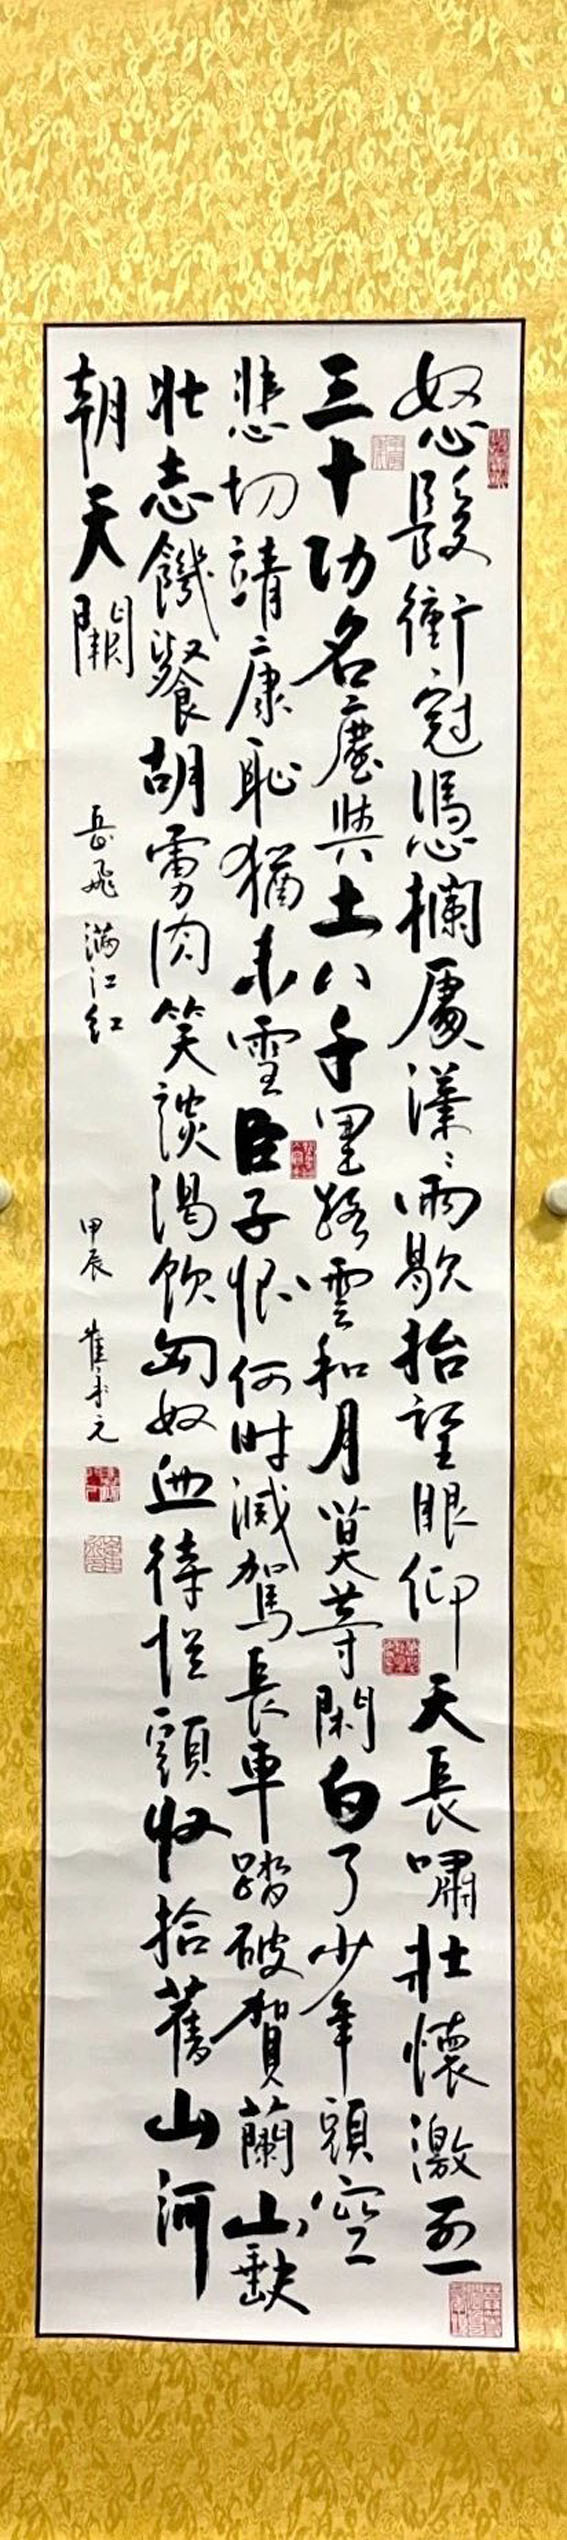 怒髮衝冠憑欄處瀟々雨歇抬望眼仰天長嘯壯懷激烈
三十功名塵與土八千里路雲和月莫等閑白了少年頭空
悲切靖康恥猶未雪臣子恨何时滅駕長車踏破賀蘭山缺
壯志饑餐胡虜肉笑談渴飲匈奴血待從頭收拾舊山河
朝天闕
岳飛 滿江紅
甲辰 崔永元